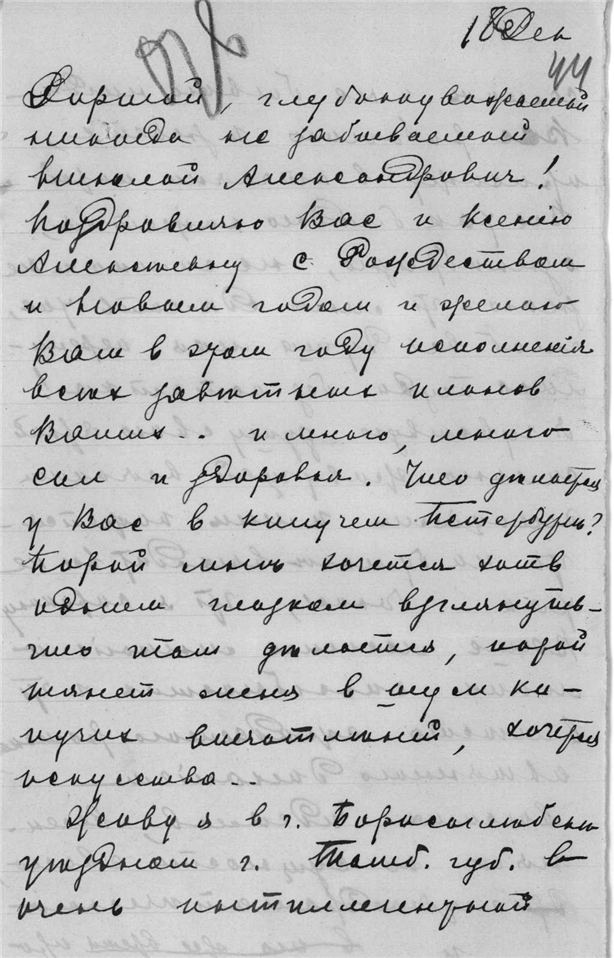 18 Дек
44
Дорогой, глубокоуважаемый
никогда не забываемый
Николай Александрович!
Поздравляю Вас и Ксенію
Алексѣевну с Рождеством
и Новым годом и желаю
Вам в этом году исполненія
всѣх завѣтных планов
Ваших.. и много, много
сил и здоровья. Что дѣлается
у Вас в кипучем Петербургѣ?
Порой мнѣ хочется хотѣ
одним глазком взглянуть –
что там дѣлается, порой
тянет меня в шум ки–
пучих впечатлѣній, хочется
искусства..
Живу я в г. Борисоглѣбскѣ
уѣздном г. Тамб. губ. в
очень интеллигентной